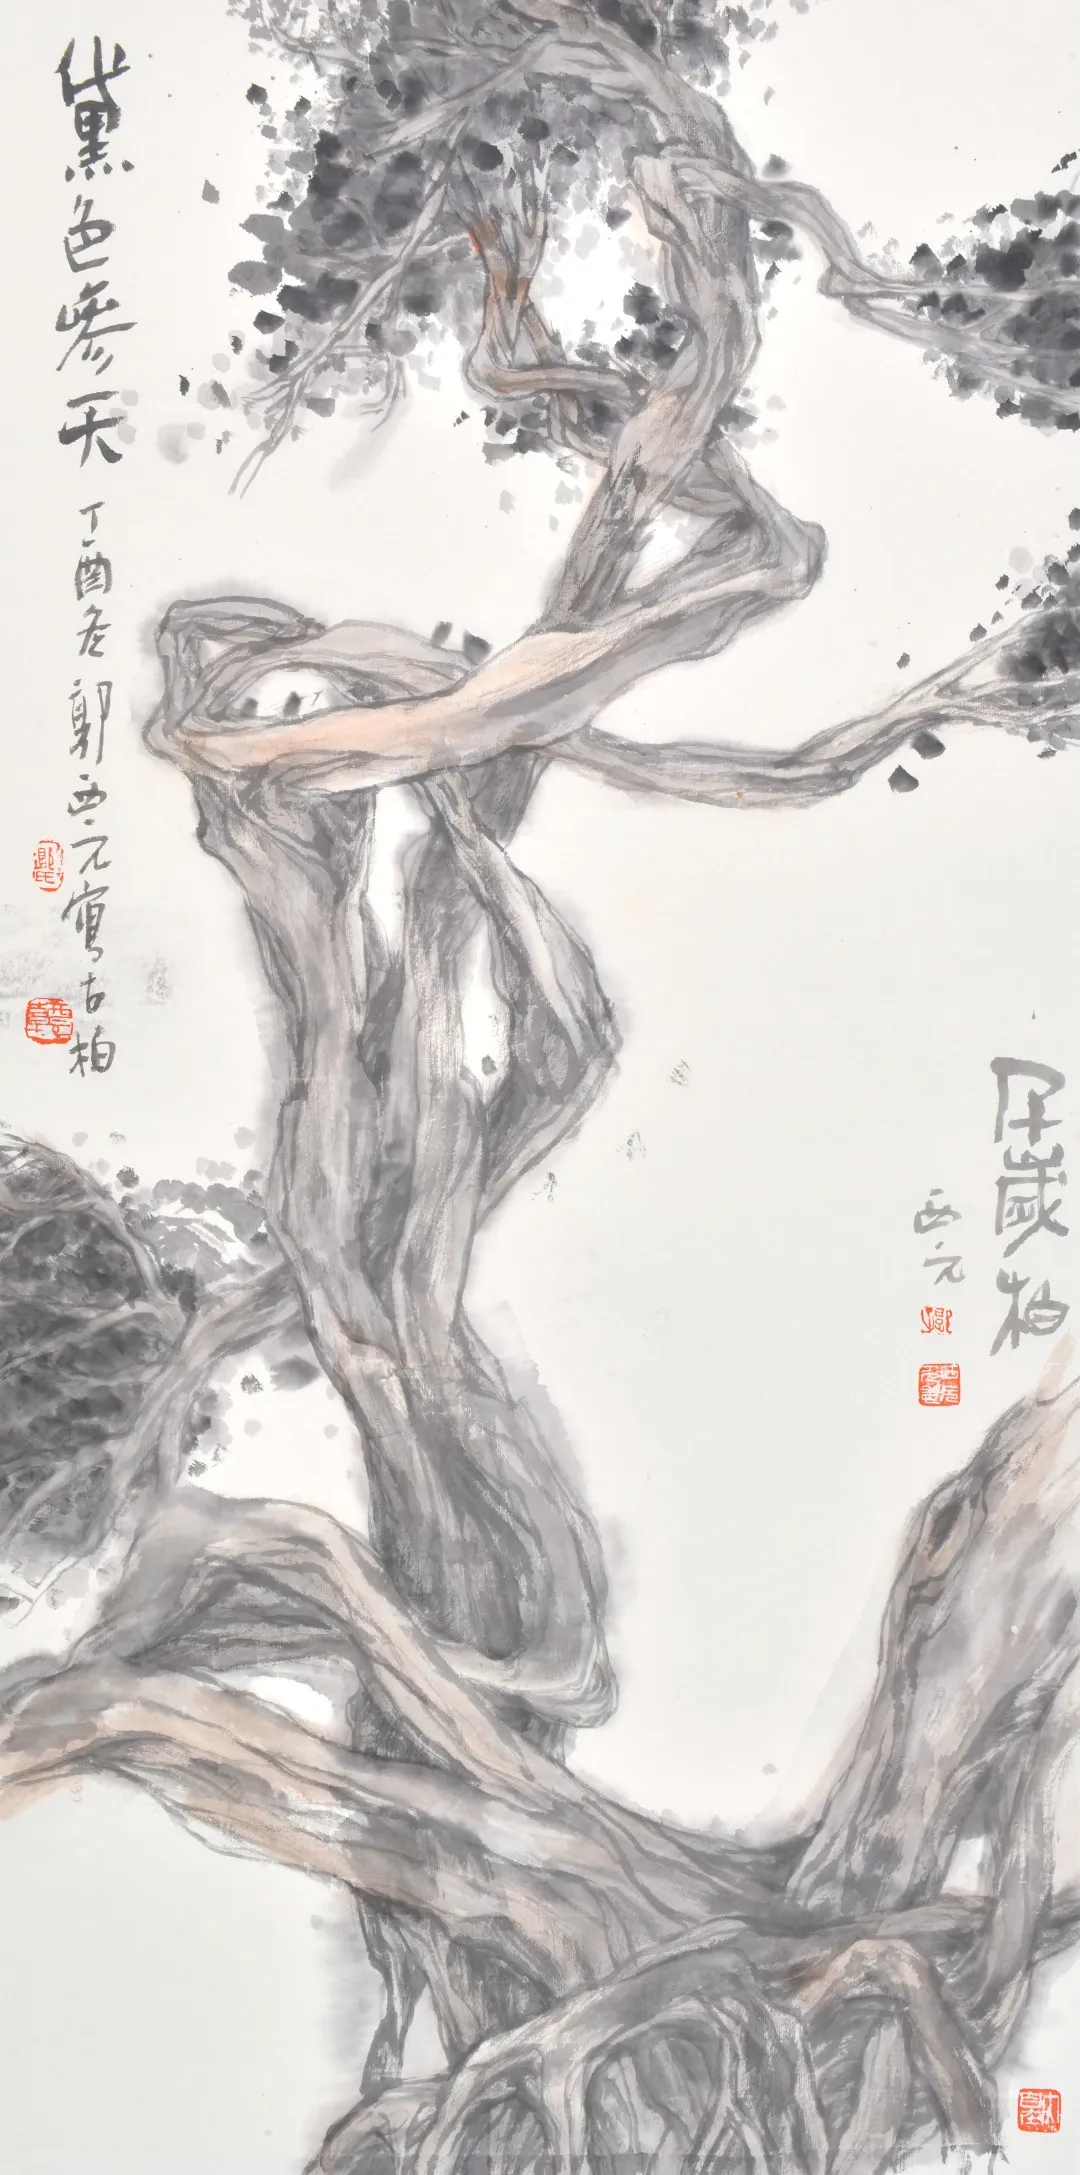 千歲柏
西元
黛色參天
丁酉冬郭西元寫古柏